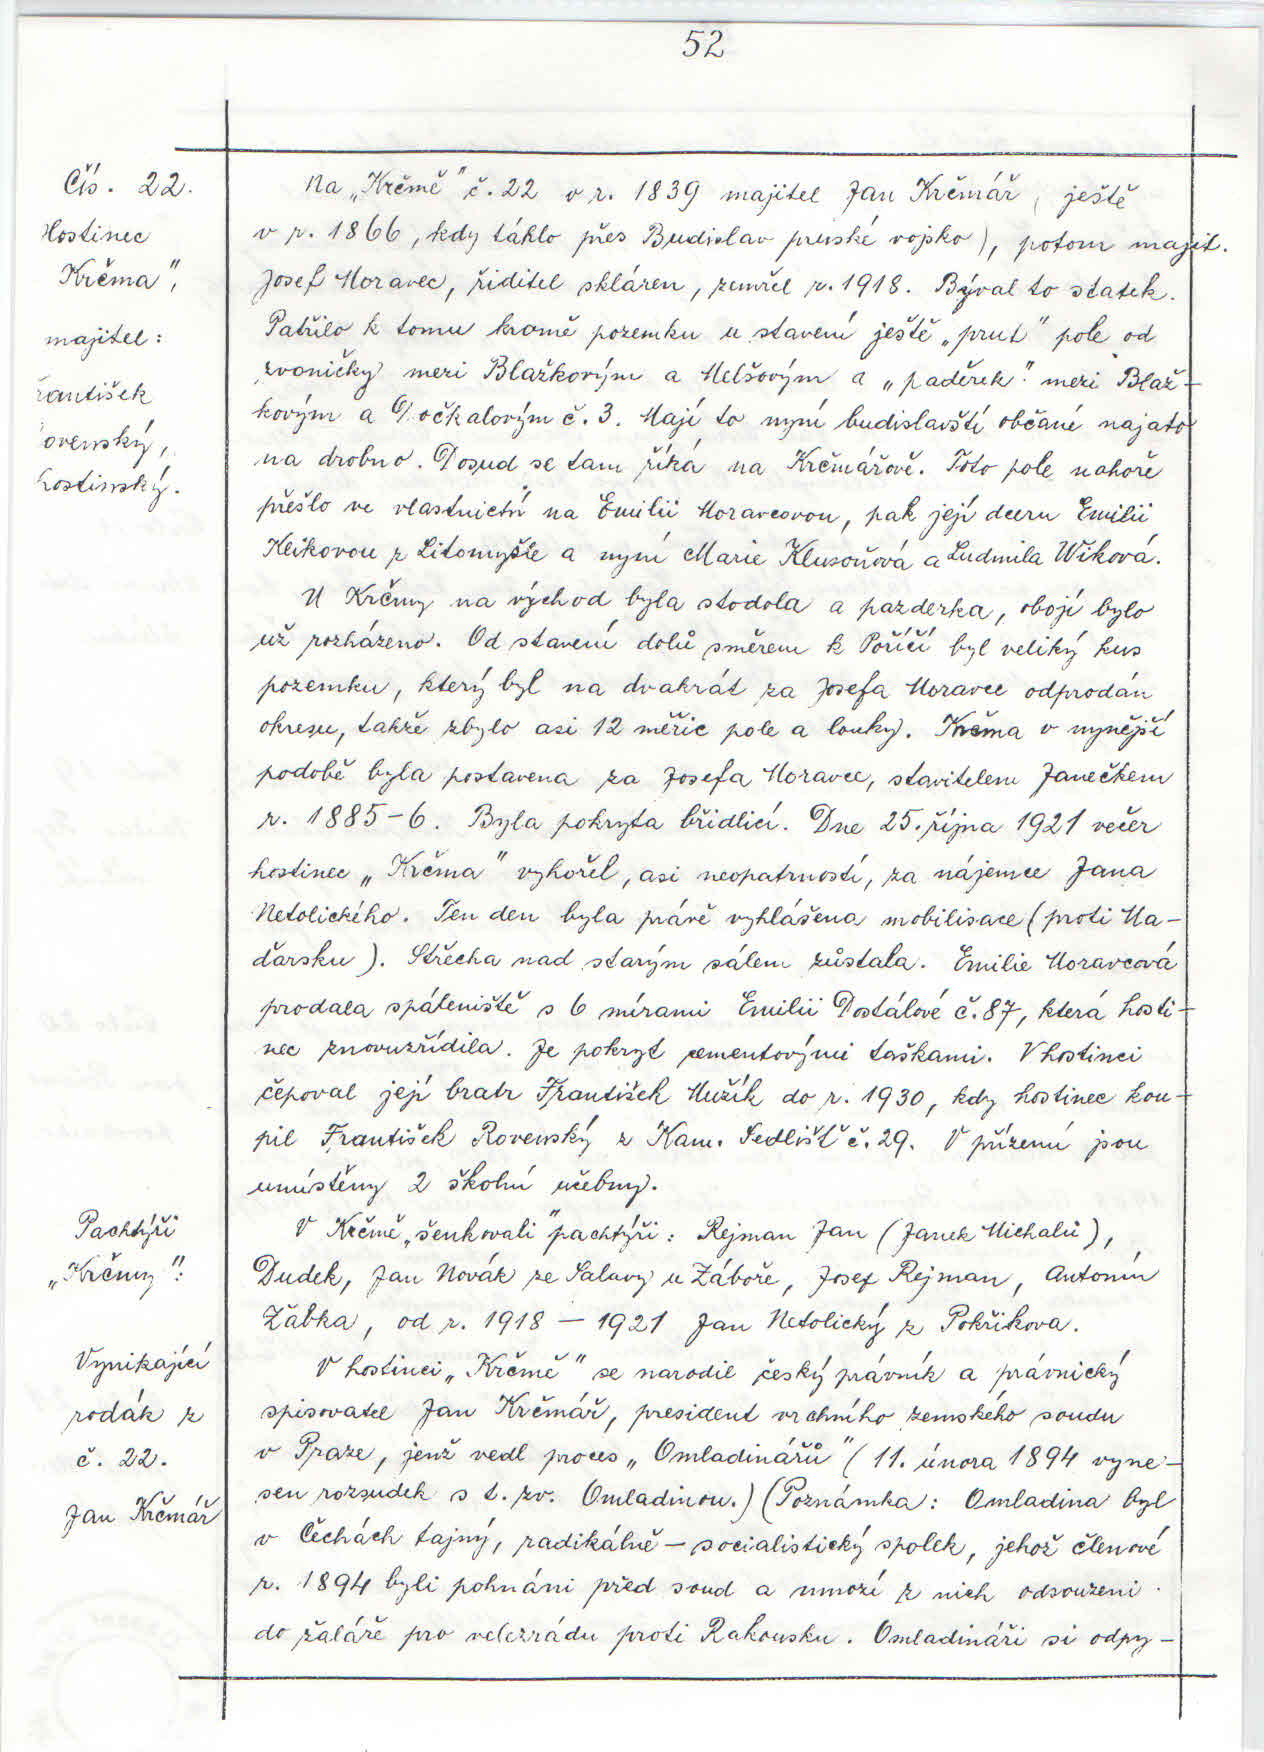 52
Čís. 22.
Hostinec
Krčma",
majitel:
František
ovenský,
hostinský.
Na „Krčmě" č. 22 v r. 1839 majitel Jan Krčmář ( ještě
v r. 1866, kdy táhlo přes Budislav pruské vojsko), potom majit.
Josef Moravec, řiditel skláren, zemřel r. 1918. Býval to statek.
Patřilo k tomu kromě pozemku u stavení ještě „prut" pole od
zvoničky mezi Blažkovým a Melšovým a „paděrek" mezi Blaž-
kovým a Počkalovým č. 3. Mají to nyní budislavští občané najato
na drobno. Dosud se tam říká na Krčmářově. Toto pole nahoře
přešlo ve vlastnictví na Emilii Moravcovou, pak její dceru Emilii
Kleikovou z Litomyšle a nyní Marie Klusoňová a Ludmila Wiková.
U Krčmy na východ byla stodola a pazderka, obojí bylo
už rozházeno. Od stavení dolů směrem k Poříčí byl veliký kus
pozemku, který byl na dvakrát za Josefa Moravce odprodán
okresu, takže zbylo asi 12 měřic pole a louky. Krčma v nynější
podobě byla postavena za Josefa Moravce, stavitelem Janečkem
r. 1885-6. Byla pokryta břidlicí. Dne 25. října 1921 večer
hostinec „Krčma" vyhořel, asi neopatrností, za nájemce Jana
Netolického. Ten den byla právě vyhlášena mobilisace (proti Ma-
ďarsku). Střecha nad starým sálem zůstala. Emilie Moravcová
prodala spáleniště s 6 mírami Emilii Dostálové č. 87, která hosti-
nec znovuzřídila. Je pokryt cementovými taškami. V hostinci
čepoval její bratr František Mužík do r. 1930, kdy hostinec kou-
pil František Rovenský z Kam. Sedlišť č. 29. V přízemí jsou
umístěny 2 školní učebny.
Pachtýři
„Krčmy":
V Krčmě „šenkovali" pachtýři: Rejman Jan (Janek Michalů),
Dudek, Jan Novák ze Salavy u Záboře, Josef Rejman, Antonín
Žabka, od r. 1918 - 1921 Jan Netolický z Pokřikova.
Vynikající
rodák z
č. 22.
Jan Krčmář
V hostinci „Krčmě" se narodil český právník a právnický
spisovatel Jan Krčmář, president vrchního zemského soudu
v Praze, jenž vedl proces „Omladinářů" (11. února 1894 vyne-
sen rozsudek s t. zv. Omladinou.) (Poznámka: Omladina byl
v Čechách tajný, radikálně - socialistický spolek, jehož členové
r. 1894 byli pohnáni před soud a mnozí z nich odsouzeni
do žaláře pro velezrádu proti Rakousku. Omladináři si odpy-